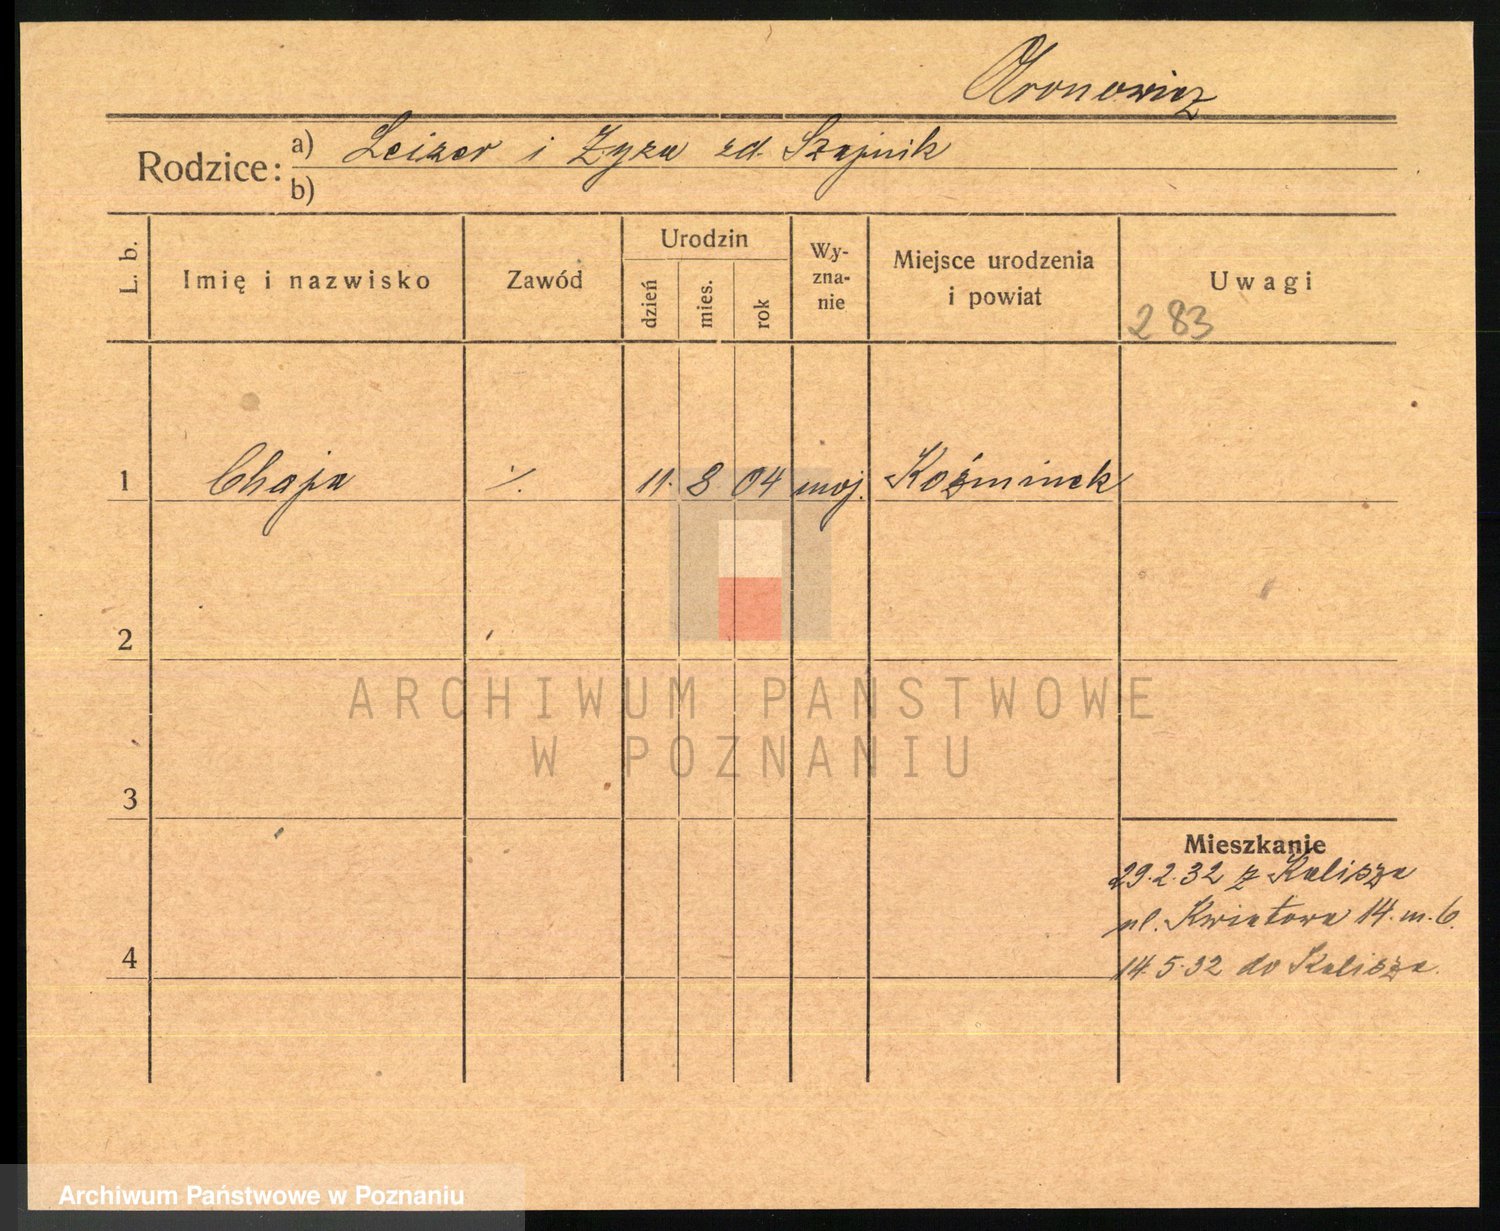 Aronowicz
Rodzice:
a) Leizer i Zyza zd. Szajnik
b)
L. b.
Imię i nazwisko
Zawód
Urodzin
dzień
mies.
rok
Wy-
zna-
nie
Miejsce urodzenia
i powiat
Uwagi
283
1 Chaja ٪. 11. 8 04 moj. Koźminek
2
3
4
Mieszkanie
29.2.32 z Kalisza
ul. Kwiatowa 14. m. 6.
14.5.32 do Kalisza.
ARCHIWUM PAŃSTWOWE
W POZNANIU
Archiwum Państwowe w Poznaniu